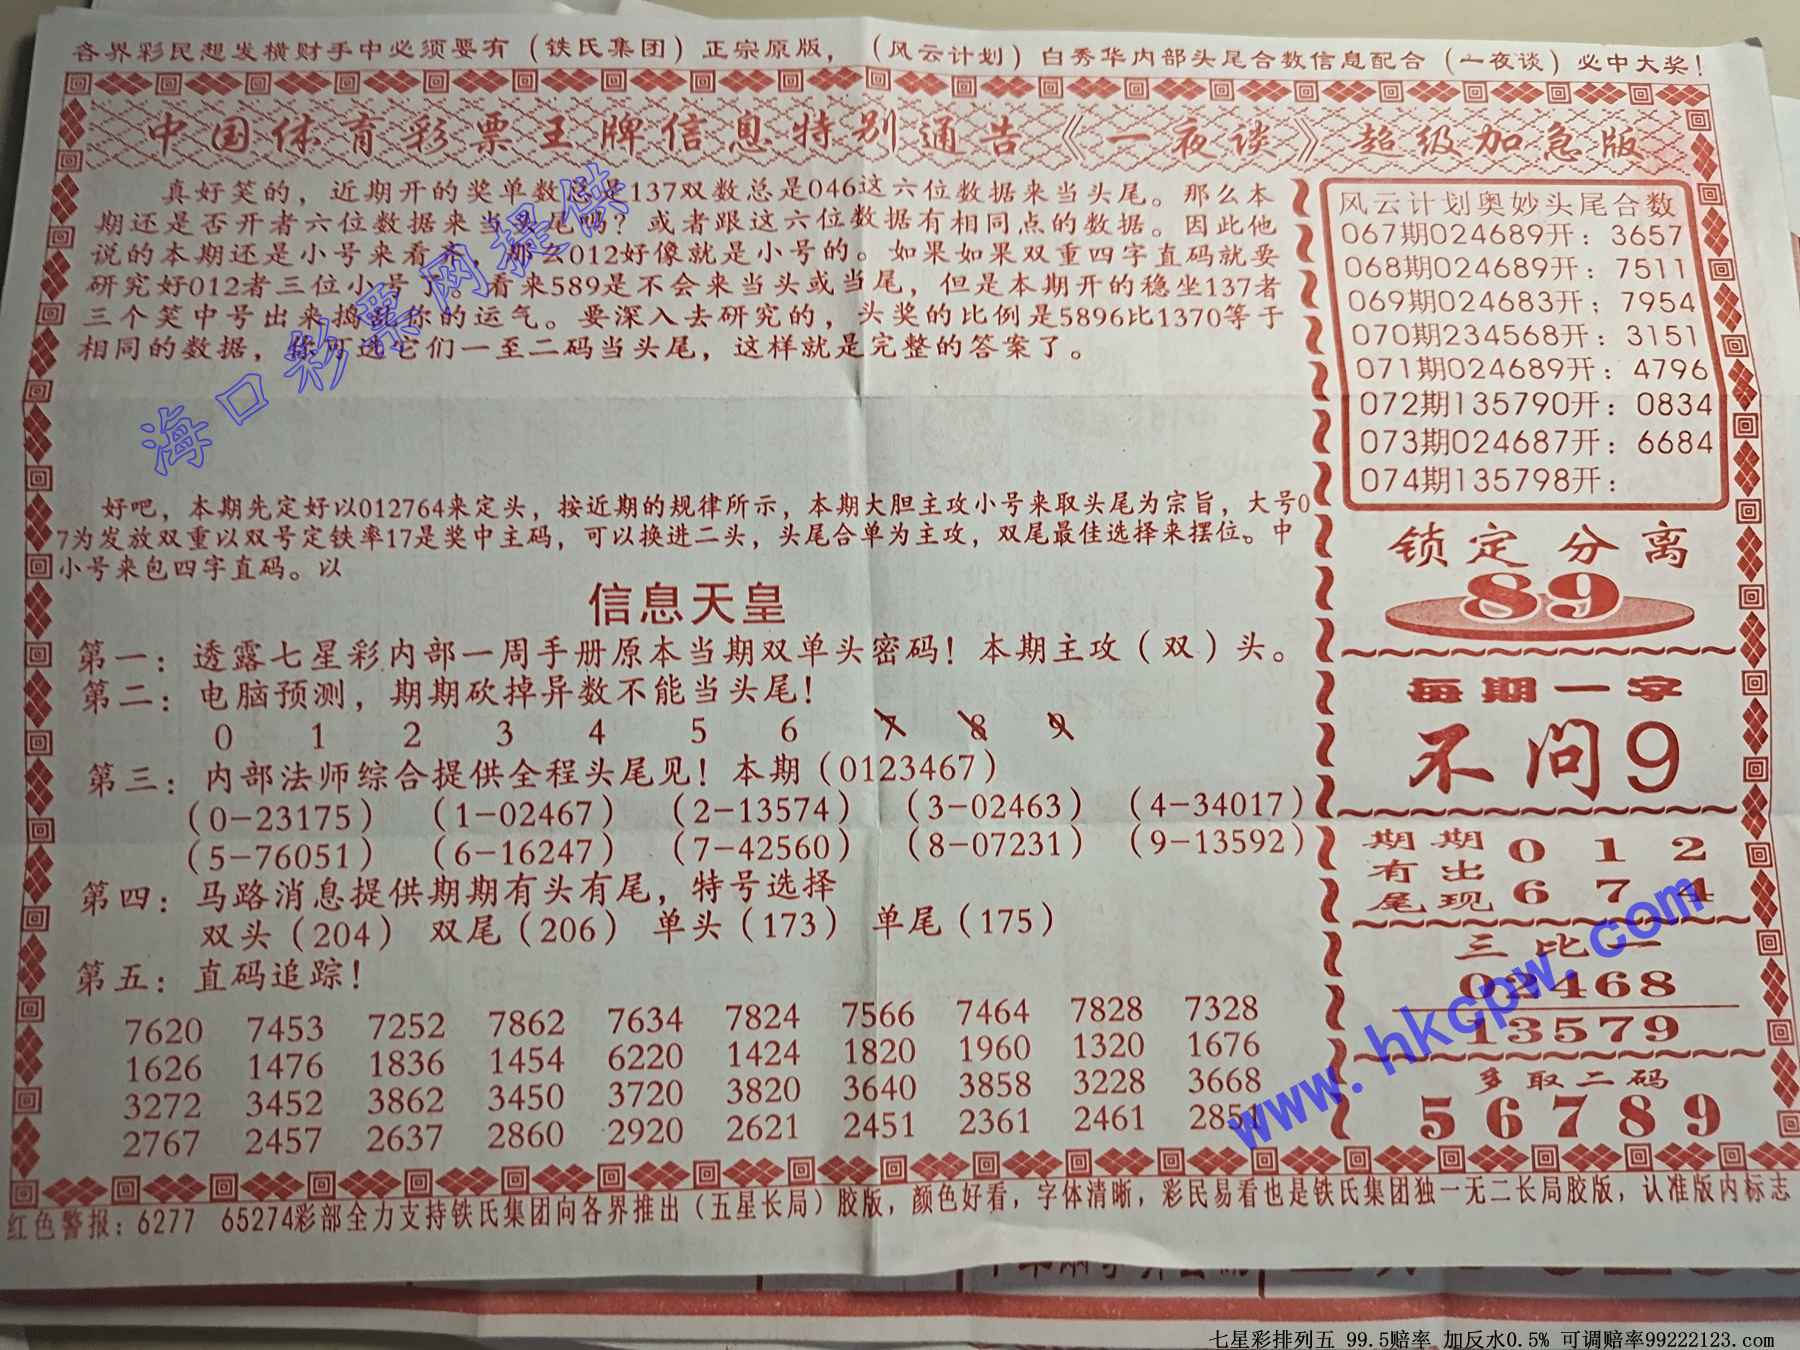 各界彩民想发横财手中必须要有（铁氏集团）正宗原版，（风云计划）白秀华内部头尾合数信息配合（一夜谈）必中大奖！
中国体育彩票王牌信息特别通告《一夜谈》超级加急版
真好笑的，近期开的奖单数总是137双数总是046这六位数据来当头尾。那么本
期还是否开者六位数据来当头尾吗？或者跟这六位数据有相同点的数据。因此他
说的本期还是小号来看齐，那么012好像就是小号的。如果如果双重四字直码就要
研究好012者三位小号了。看来589是不会来当头或当尾，但是本期开的稳坐137者
三个笑中号出来捣乱你的运气。要深入去研究的，头奖的比例是5896比1370等于
相同的数据，你可选它们一至二码当头尾，这样就是完整的答案了。
好吧，本期先定好以012764来定头，按近期的规律所示，本期大胆主攻小号来取头尾为宗旨，大号0
7为发放双重以双号定铁率17是奖中主码，可以换进二头，头尾合单为主攻，双尾最佳选择来摆位。中
小号来包四字直码。以
信息天皇
第一：透露七星彩内部一周手册原本当期双单头密码！本期主攻（双）头。
第二：电脑预测，期期砍掉异数不能当头尾！
0 1 2 3 4 5 6 7 8 9
第三：内部法师综合提供全程头尾见！本期（0123467）
（0-23175）（1-02467）（2-13574）（3-02463）（4-34017）
（5-76051）（6-16247）（7-42560）（8-07231）（9-13592）
第四：马路消息提供期期有头有尾，特号选择
双头（204） 双尾（206） 单头（173） 单尾（175）
第五：直码追踪！
7620 7453 7252 7862 7634 7824 7566 7464 7828 7328
1626 1476 1836 1454 6220 1424 1820 1960 1320 1676
3272 3452 3862 3450 3720 3820 3640 3858 3228 3668
2767 2457 2637 2860 2920 2621 2451 2361 2461 2851
风云计划奥妙头尾合数
067期024689开：3657
068期024689开：7511
069期024683开：7954
070期234568开：3151
071期024689开：4796
072期135790开：0834
073期024687开：6684
074期135798开：
锁定分离
89
每期一字
不问9
期期 0 1 2
有出
尾现 6 7 4
三比一
02468
13579
多取二码
56789
红色警报：6277 65274彩部全力支持铁氏集团向各界推出（五星长局）胶版，颜色好看，字体清晰，彩民易看也是铁氏集团独一无二长局胶版，认准版内标志
海口彩票网提供
www.hkcpw.com
七星彩排列五 99.5赔率 加反水0.5% 可调赔率99222123.com